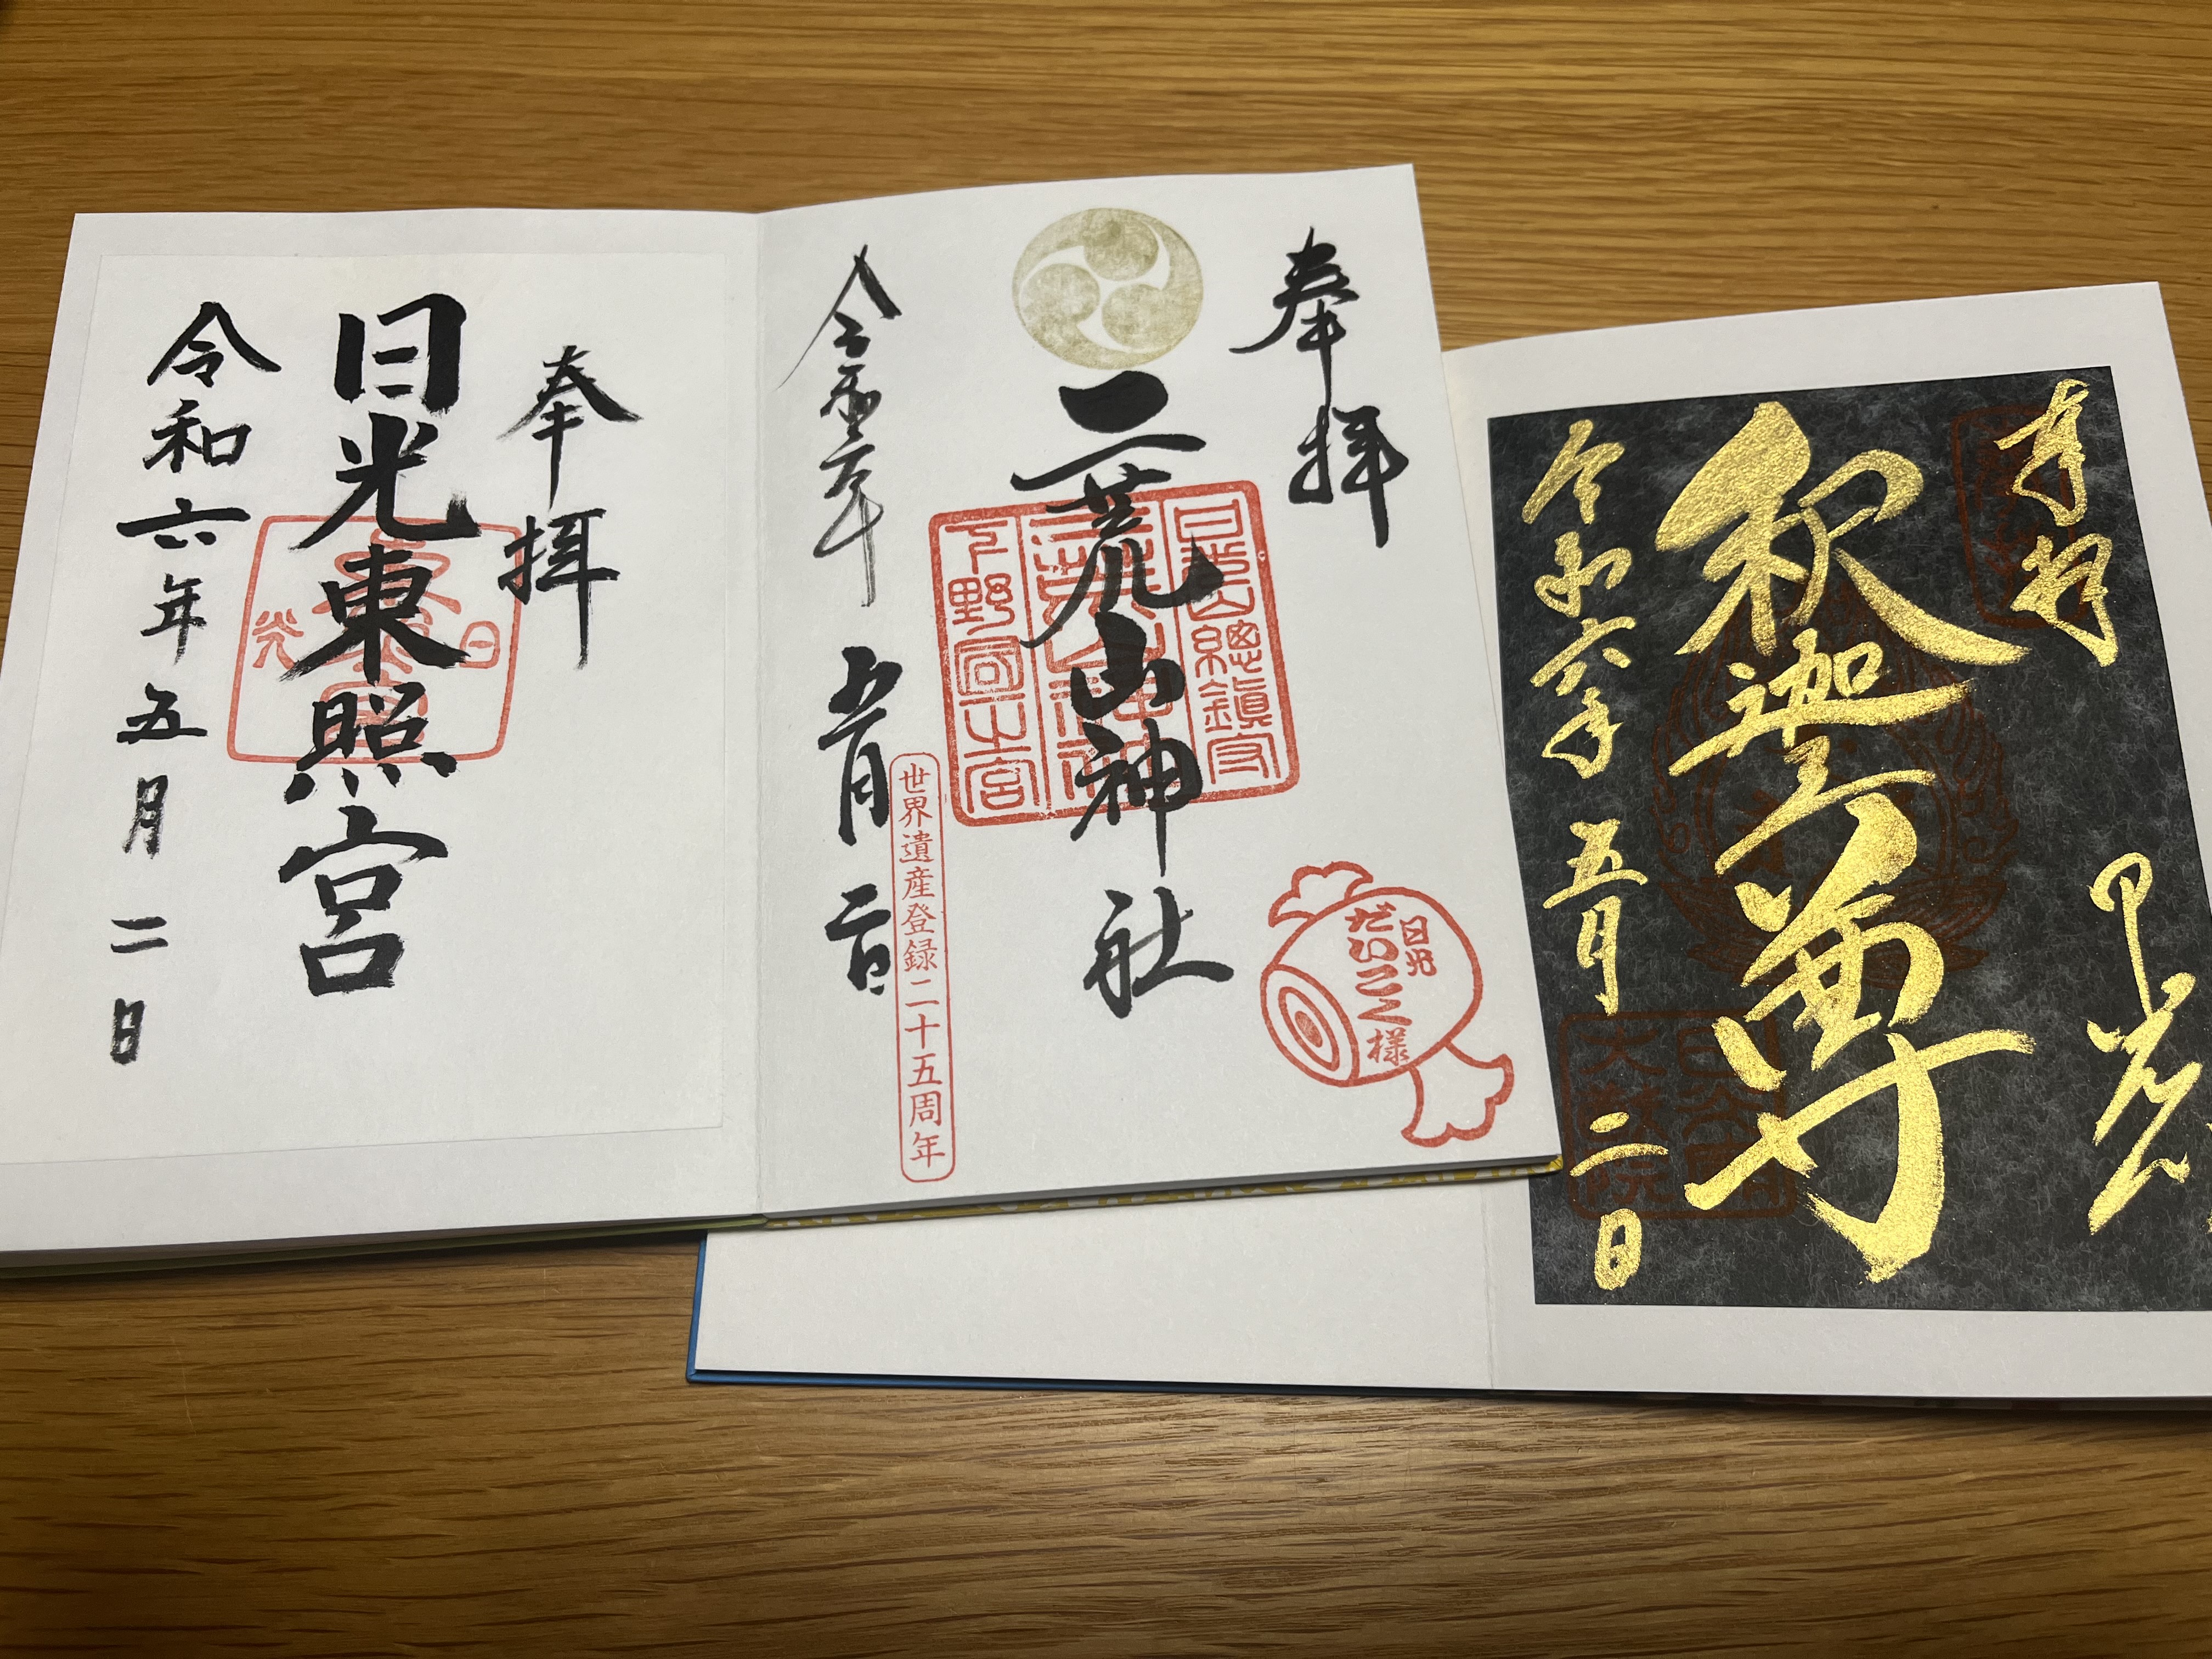 奉拝
日光東照宮
日光
令和六年五月二日
奉拝
二荒山神社
日光山總鎮守
二荒山神社
下野國一之宮
令和六年
五月二日
世界遺産登録二十五周年
日光
だいこく様
奉拝
釈迦三尊
日光
令和六年五月二日
大猷院